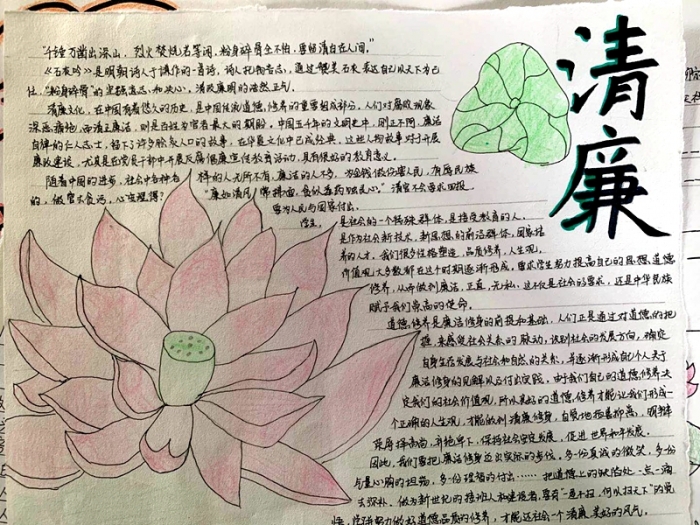 清廉
"千锤万凿出深山，烈火焚烧若等闲，粉身碎骨全不怕，要留清白在人间。"
《石灰吟》是明朝诗人于谦作的一首诗，诗人托物言志，通过赞美石灰表达自己以天下为己
任，"粉身碎骨"的坚强意志和决心，清改廉明的浩然正气。
清廉文化，在中国有着悠久的历史，是中国传统道德修养的重要组成部分，人们对腐败现象
深恶痛绝，而清正廉洁，则是百姓为官者最大的期盼，中国五千年的文明史中，刚正不阿，廉洁
自律的仁人志士，留下了许多脍炙人口的故事，在华夏文化中已成经典，这些人物故事对于开展
廉政建设，尤其是在党员干部中开展反腐倡廉宣传教育活动，具有很好的教育意义。
随着中国的进步，社会中各种各样的人无所不有，廉洁的人不多，为金钱做伤害人民，有辱民族
的，做官不贪污，心安理得？"廉如清风常拂面，贪似毒药独衷心。"清官不会要求回报。
要为人民与国家付出。
学生，是社会的一个特殊群体，是接受教育的人。
是作为社会新技术，新思想的前沿群体，国家培
养的人才，我们很多性格塑造，品质修养，人生观，
价值观，大多数都在这个时期逐渐形成，要求学生努力提高自己的思想、道德
修养，从而做到廉洁，正直，无私，这不仅是社会的要求，还是中华民族
赋予我们崇高的使命。
道德修养是廉洁修身的前提和基础，人们正是通过对道德的把
握，来感觉社会关系的脉动，识别社会的发展方向，确定
自身生存发展与社会和自然的关系，并逐渐形成自己个人关于
廉洁修身的见解以及付出实践，由于我们自己的道德修养决
定我们的社会价值观，所以美好的道德修养才能让我们形成一
个正确的人生观，才能做到清廉修身，自觉地扬善抑恶，明辨
荣辱择高尚，弃卑下，保持社会安定发展，促进世界和平发展。
因此，我们要把廉洁修身迈出实际的步伐。多一份真诚的微笑，多一份
气量心胸的坦荡，多一份理智的付出……把道德上的缺陷处一点一滴
去弥补。做为新世纪的接班人和建设者，要有"一屋不扫，何以扫天下"的觉
悟，应该努力做好道德品质的修养，才能还社会一个清廉，美好的风气。